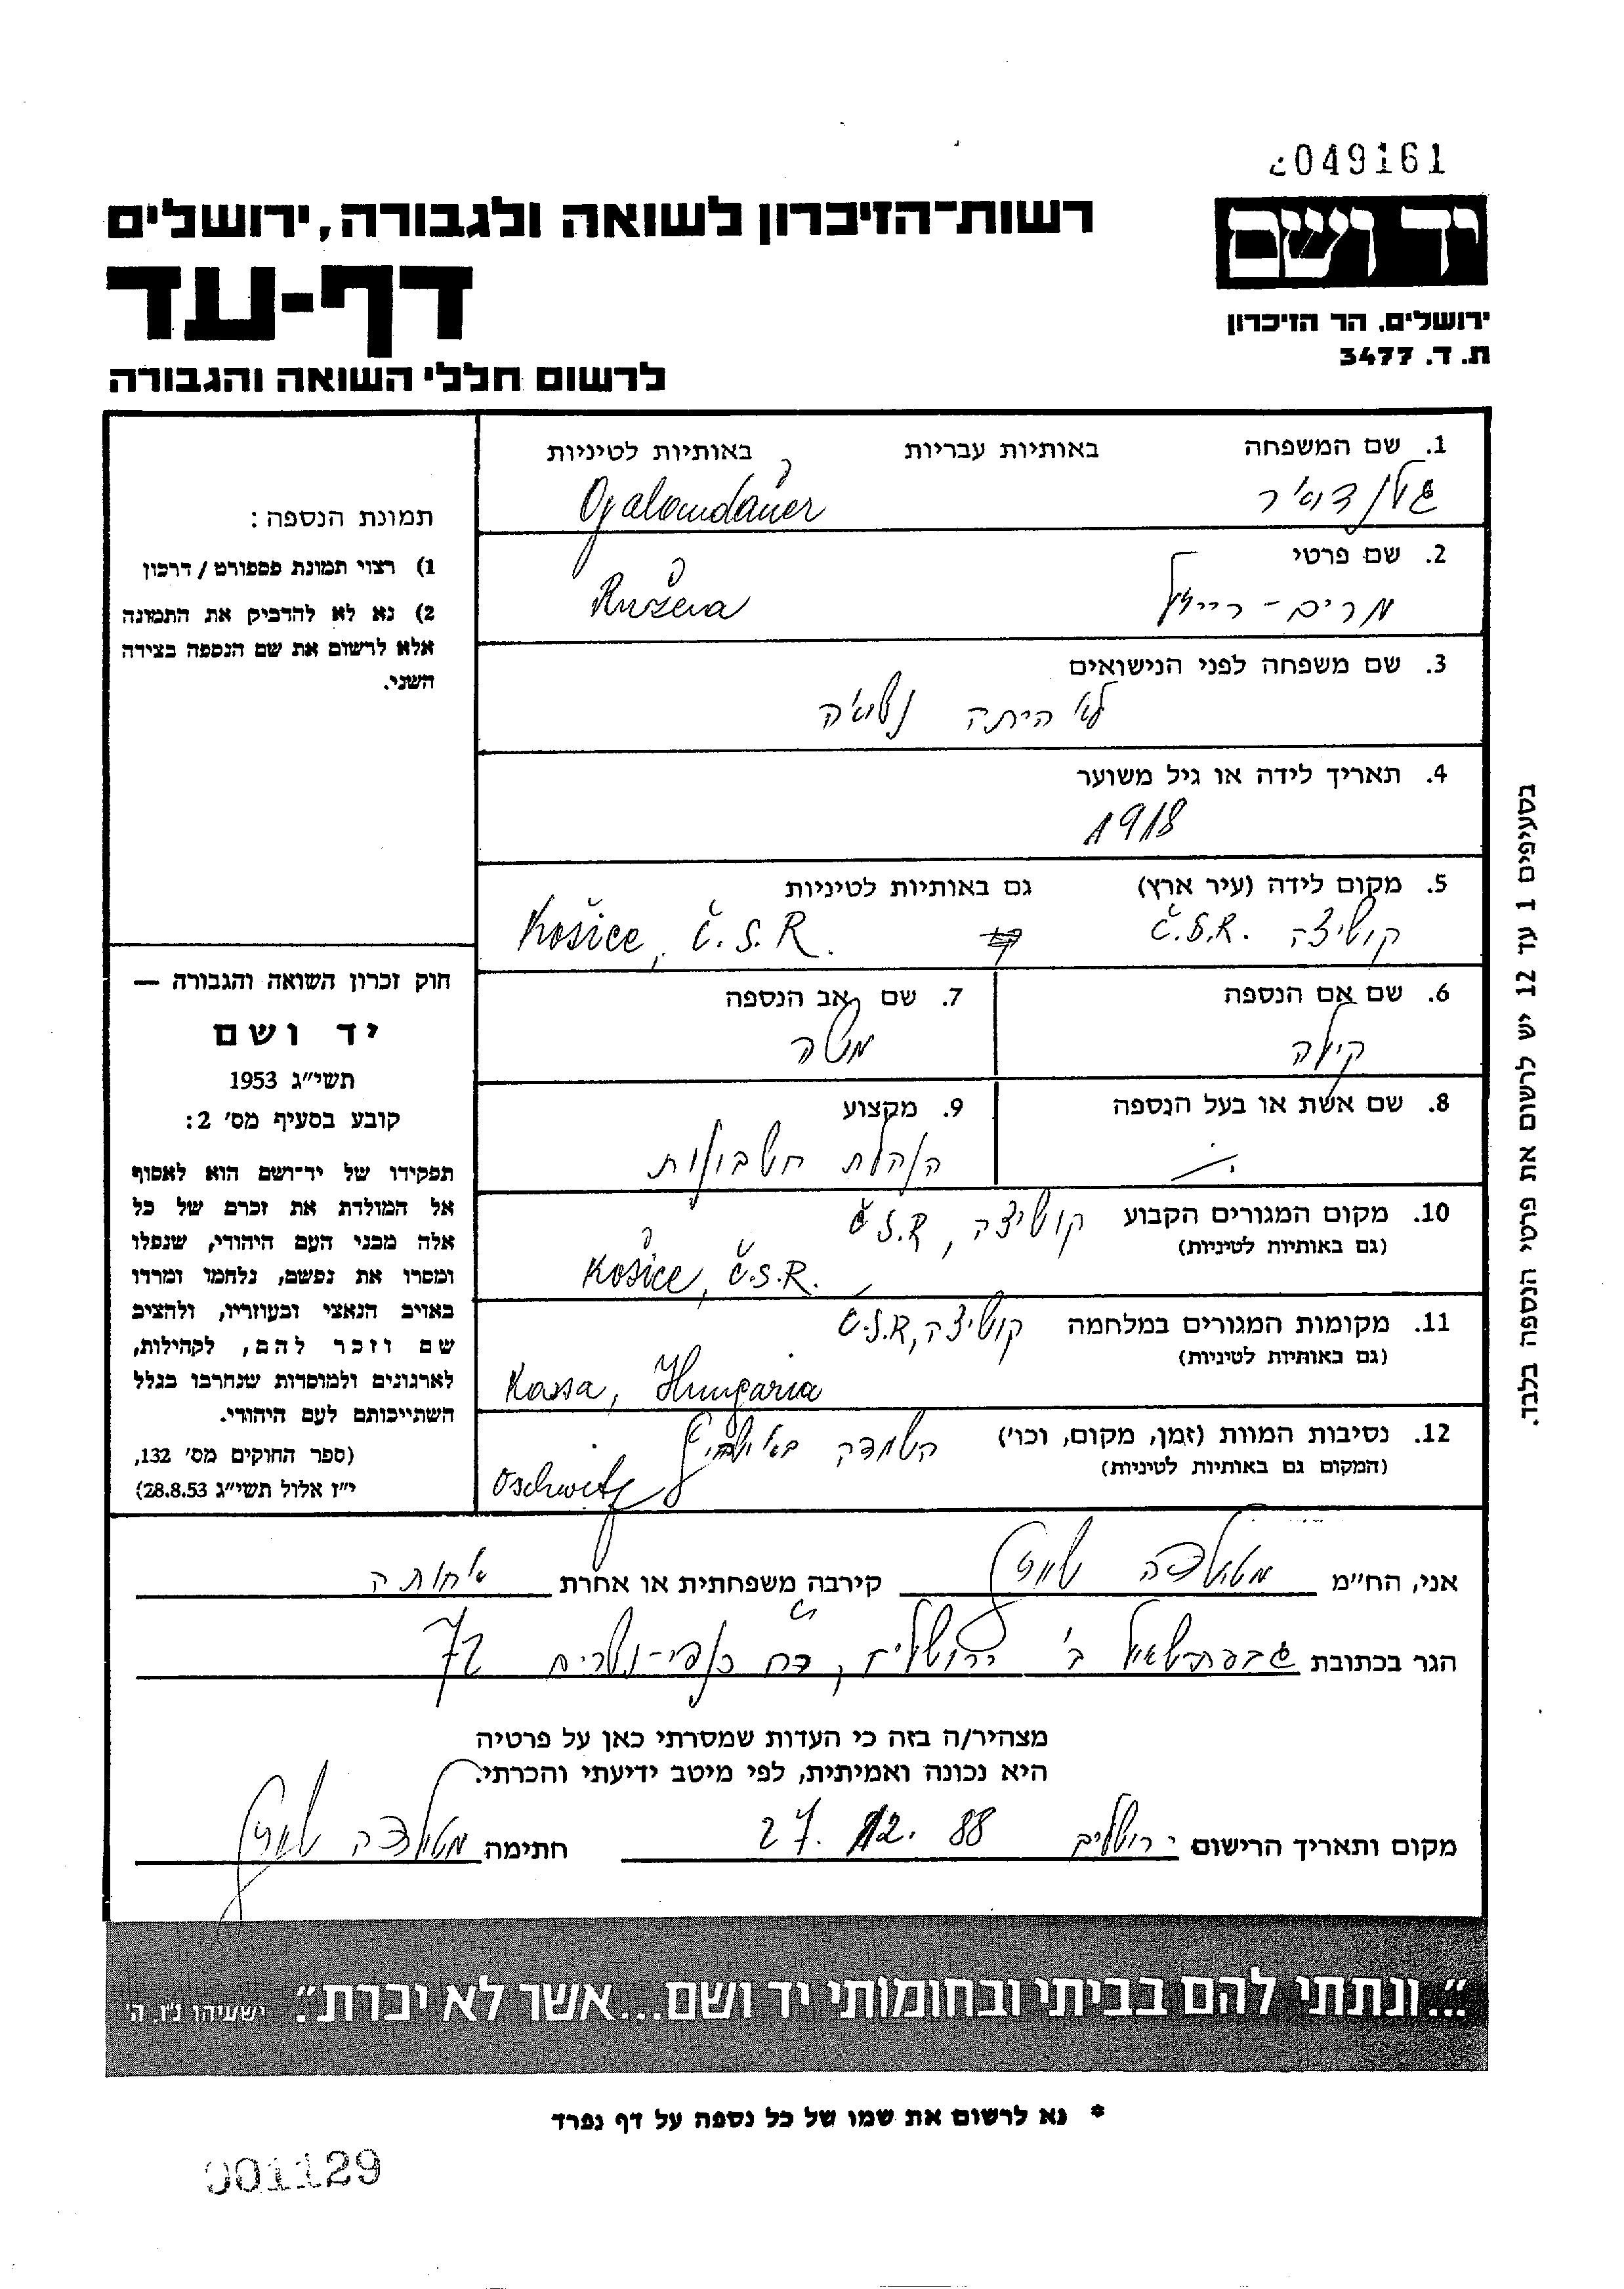 2049161
יד ושם
ירושלים, הר הזיכרון
ת. ד. 3477
רשות־הזיכרון לשואה ולגבורה, ירושלים
דף-עד
לרשום חללי השואה והגבורה
תמונת הנספה:
1) רצוי תמונת פספורט / דרכון
2) נא לא להדביק את התמונה
אלא לרשום את שם הנספה בצידה
השני.
חוק זכרון השואה והגבורה —
יד ושם
תשי״ג 1953
קובע בסעיף מס׳ 2:
תפקידו של יד־ושם הוא לאסוף
אל המולדת את זכרם של כל
אלה מבני העם היהודי, שנפלו
ומסרו את נפשם, נלחמו ומרדו
באויב הנאצי ובעוזריו, ולהציב
שם וזכר להם, לקהילות,
לארגונים ולמוסדות שנחרבו בגלל
השתייכותם לעם היהודי.
(ספר החוקים מס׳ 132,
י״ז אלול תשי״ג 28.8.53)
1. שם המשפחה באותיות עבריות באותיות לטיניות
2. שם פרטי
מרים - רייזל Ružena
3. שם משפחה לפני הנישואים
לא היתה נשואה
4. תאריך לידה או גיל משוער
1918
5. מקום לידה (עיר ארץ) גם באותיות לטיניות
קושיצה Č.S.R. Košice, Č.S.R.
6. שם אם הנספה
7. שם אב הנספה
משה
8. שם אשת או בעל הנספה
9. מקצוע
הנהלת חשבונות
10. מקום המגורים הקבוע קושיצה, Č.S.R
(גם באותיות לטיניות)
Košice, Č.S.R.
11. מקומות המגורים במלחמה קושיצה, Č.S.R
(גם באותיות לטיניות)
Kassa, Hungaria
12. נסיבות המוות (זמן, מקום, וכו׳) השמדה באושביץ
(המקום גם באותיות לטיניות)
Oschwitz
אני, הח״מ מטילדה שורץ קירבה משפחתית או אחרת אחותה
הגר בכתובת גבעת שאול ב׳ ירושלים, רח׳ כנפי-נשרים 72
מצהיר/ה בזה כי העדות שמסרתי כאן על פרטיה
היא נכונה ואמיתית, לפי מיטב ידיעתי והכרתי.
מקום ותאריך הרישום ירושלים 27. 12. 88 חתימה מטילדה שורץ
בסעיפים 1 עד 12 יש לרשום את פרטי הנספה בלבד.
״...ונתתי להם בביתי ובחומותי יד ושם...אשר לא יכרת״. ישעיהו נ״ו, ה׳
* נא לרשום את שמו של כל נספה על דף נפרד
001129